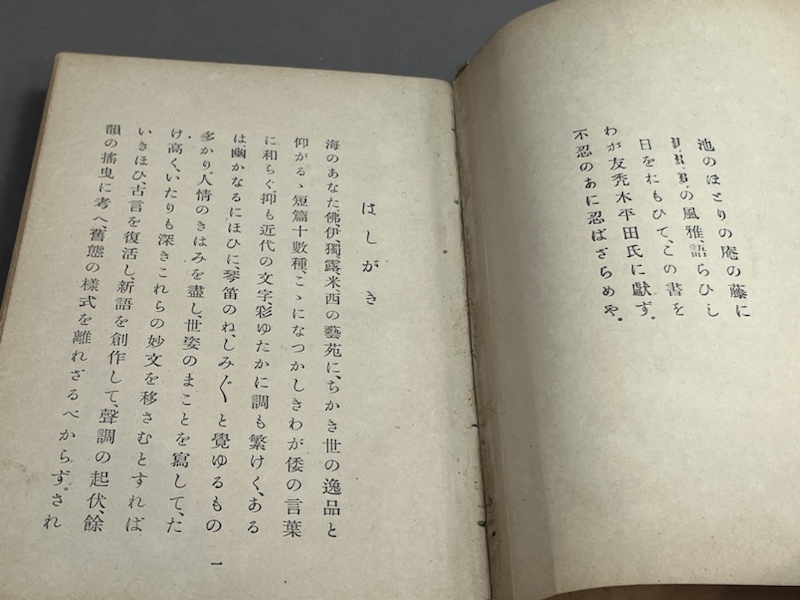 池のほとりの庵の藤に
P.R.B.の風雅、語らひし
日をおもひて、この書を
わが友禿木平田氏に獻ず。
不忍のあに忍ばざらめや。
はしがき
海のあなた、佛、伊、獨、露、米、西の藝苑に、ちかき世の逸品と
仰がるゝ短篇十數種、こゝになつかしきわが倭の言葉
に和らぐ。抑も近代の文字、彩ゆたかに調も繁けく、ある
は幽かなるにほひに、琴笛のね、しみ〴〵と覺ゆるもの
多かり。人情のきはみを盡し、世姿のまことを寫して、た
け高く、いたりも深きこれらの妙文を移さむとすれば
いきほひ、古言を復活し、新語を創作して、聲調の起伏、餘
韻の搖曳に考へ、舊態の樣式を離れざるべからず。され
一